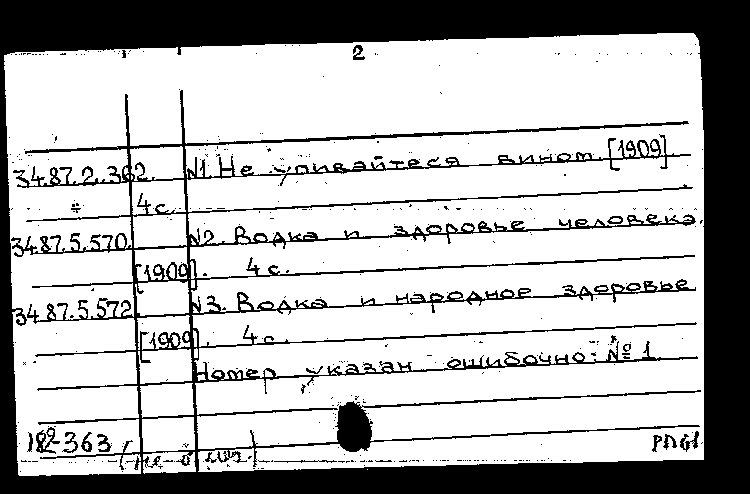 2
34.87.2.362. N1. Не упивайтеся вином. [1909].
4 с.
34.87.5.570. N2. Водка и здоровье человека.
[1909]. 4 с.
34.87.5.572. N3. Водка и народное здоровье
[1909]. 4 с.
Номер указан ошибочно: № 1.
363